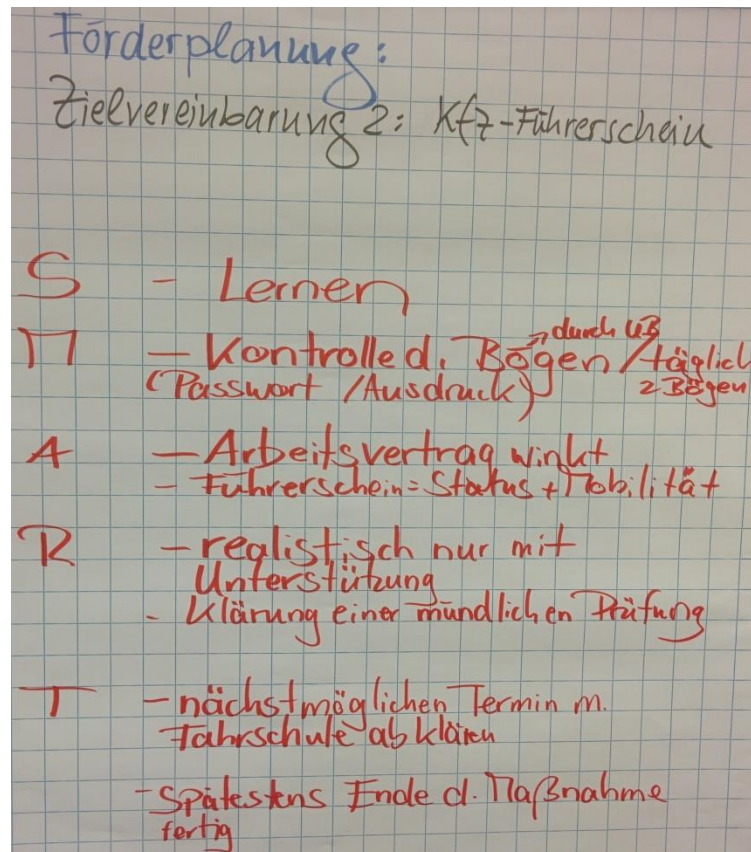 Förderplanung:
Zielvereinbarung 2: Kfz-Führerschein
S - Lernen
M - Kontrolle d. Bögen / täglich
durch ÜB
(Passwort / Ausdruck) 2 Bögen
A - Arbeitsvertrag winkt
- Führerschein = Status + Mobilität
R - realistisch nur mit
Unterstützung
- Klärung einer mündlichen Prüfung
T - nächstmöglichen Termin m.
Fahrschule abklären
- Spätestens Ende d. Maßnahme
fertig